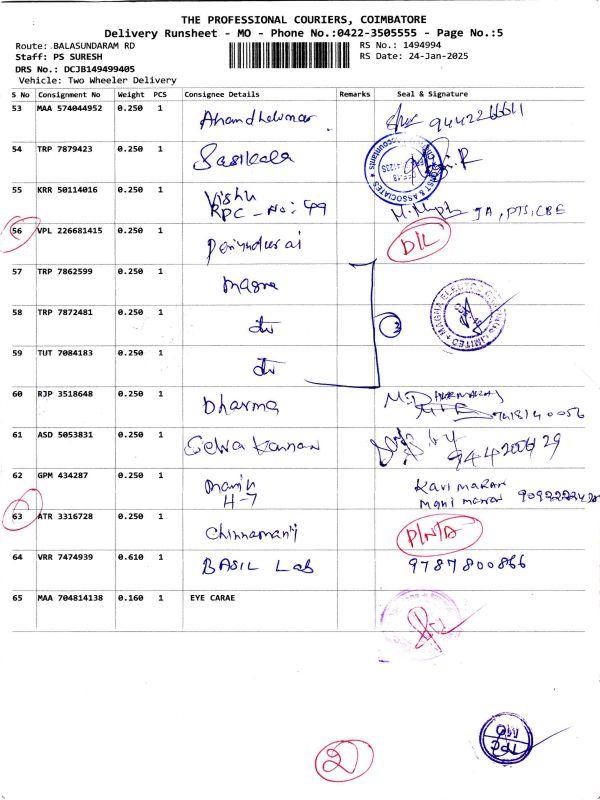 THE PROFESSIONAL COURIERS, COIMBATORE
Delivery Runsheet - MO - Phone No.:0422-3505555 - Page No.:5
Route: BALASUNDARAM RD RS No.: 1494994
Staff: PS SURESH RS Date: 24-Jan-2025
DRS No.: DCJB149499405
Vehicle: Two Wheeler Delivery
S No Consignment No Weight PCS Consignee Details Remarks Seal & Signature
53 MAA 574044952 0.250 1 9442266611
54 TRP 7879423 0.250 1 Sasikala
55 KRR 50114016 0.250 1 Vishu
RPC - No: 499 JA, PTS, CBE
56 VPL 226681415 0.250 1 Periyndurai D/L
57 TRP 7862599 0.250 1 Magna
58 TRP 7872481 0.250 1 3
59 TUT 7084183 0.250 1
60 RJP 3518648 0.250 1 Dharma M. DHARMARAJ
61 ASD 5053831 0.250 1 Selva Kannan
62 GPM 434287 0.250 1 Kavi maran
H-7 Mani maran
63 ATR 3316728 0.250 1 Chinnamani
64 VRR 7474939 0.610 1 BASIL Lab 9787800866
65 MAA 704814138 0.160 1 EYE CARAE
2
TPC
MO